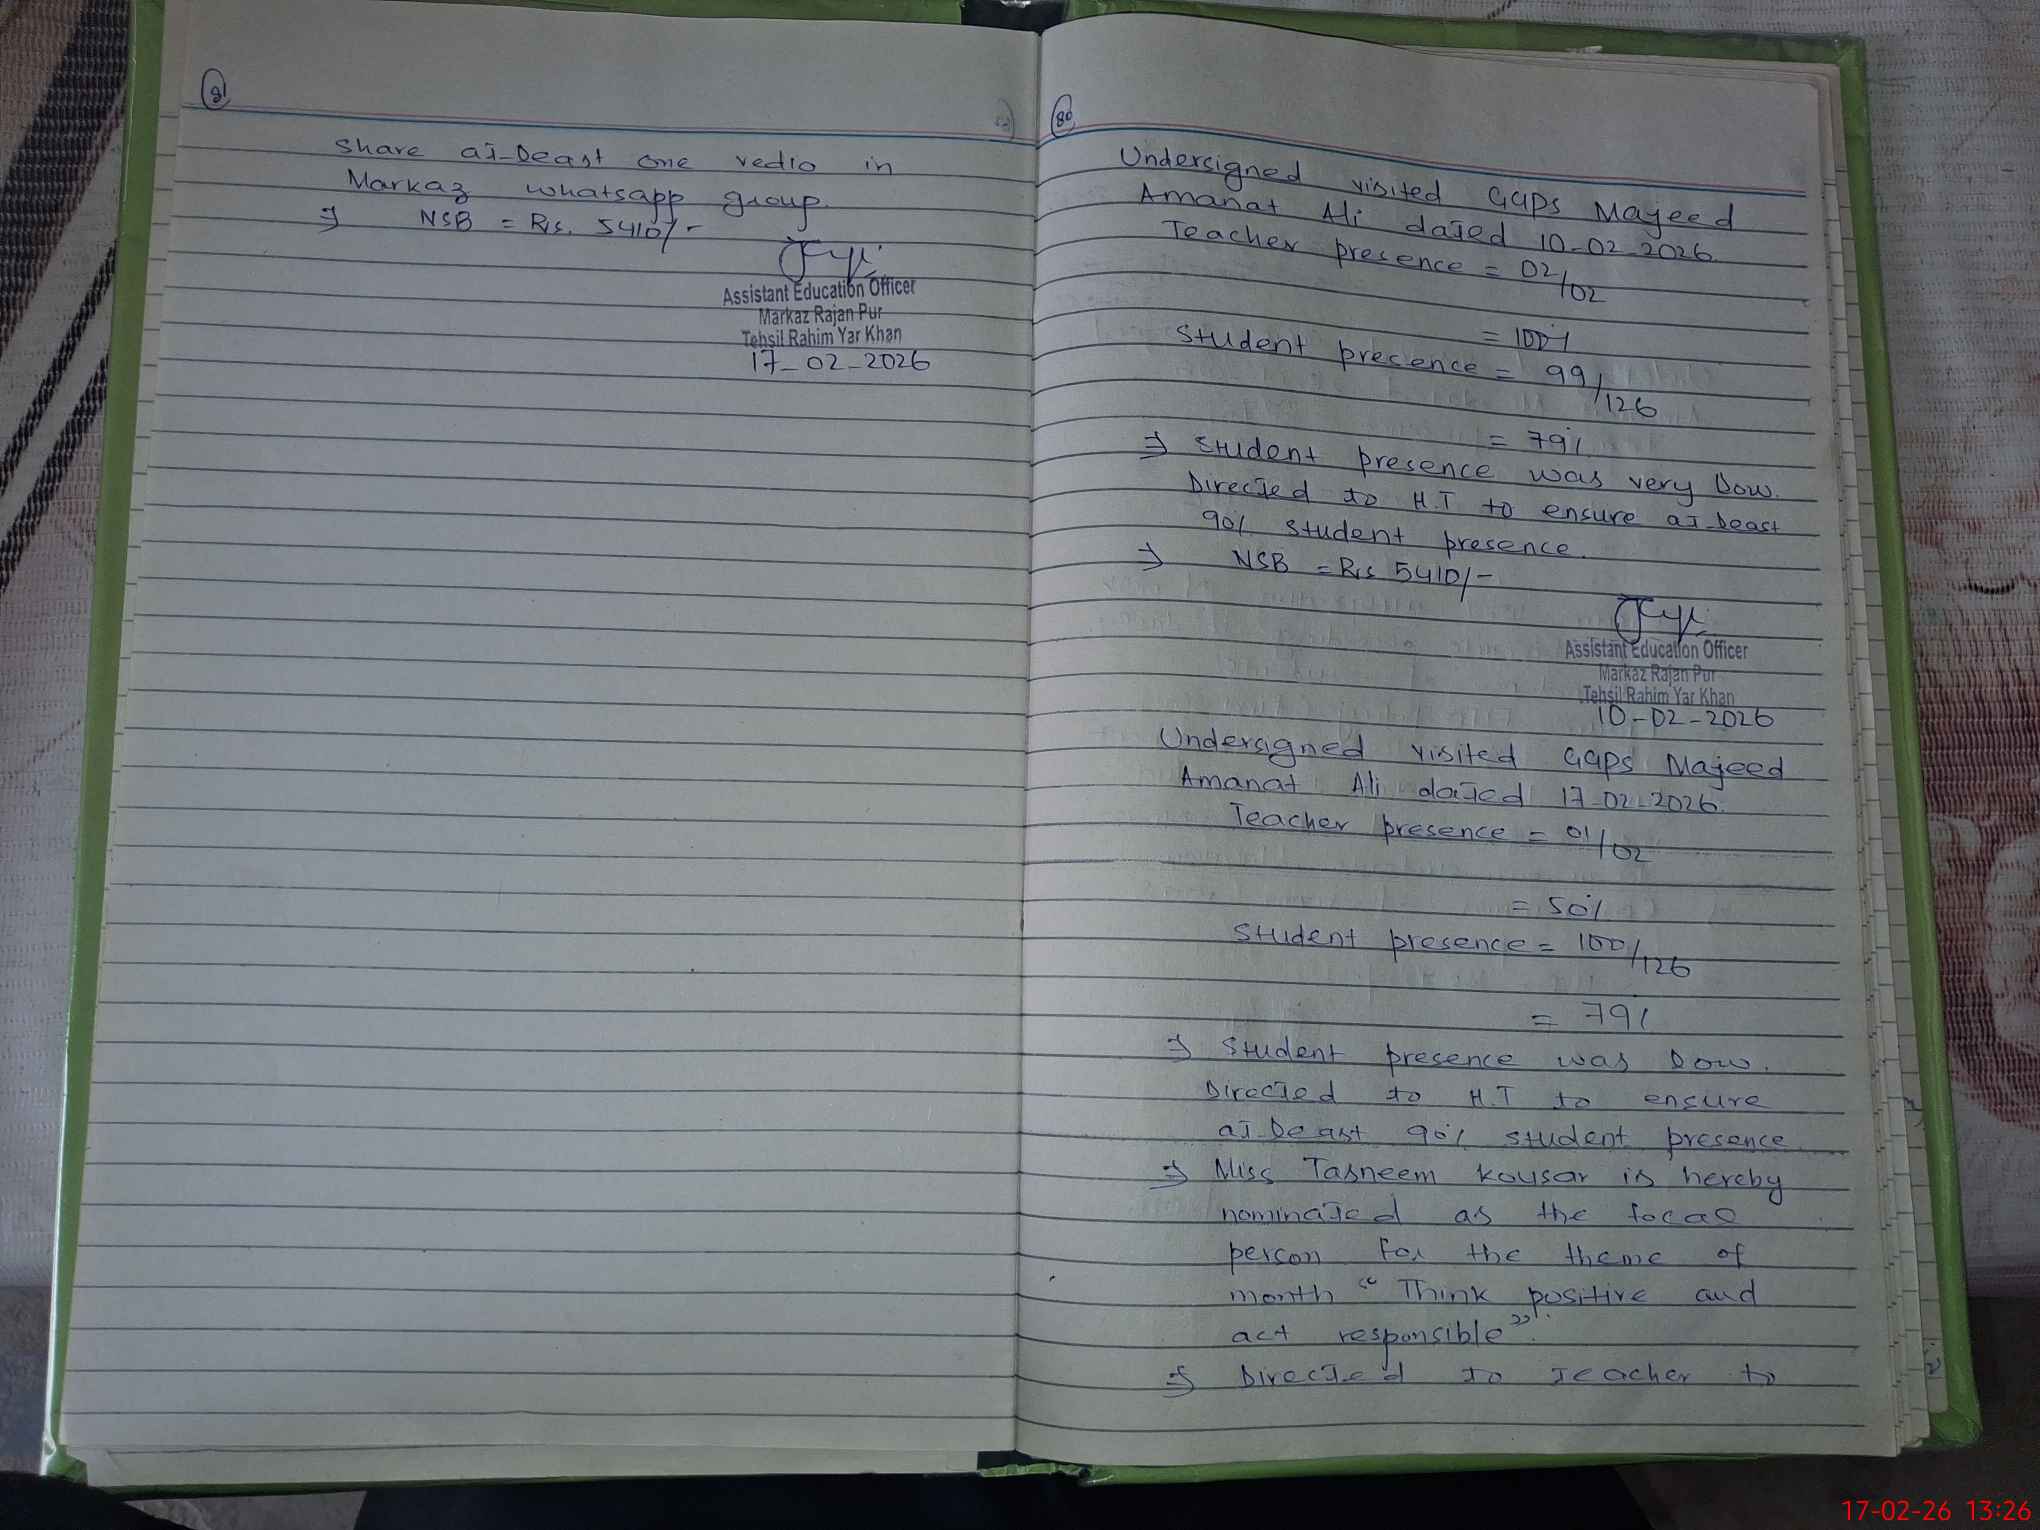 80
Undersigned visited GGPS Majeed
Amanat Ali dated 10-02-2026
Teacher presence = 02/02
= 100%
Student presence = 99/126
= 79%
⇒ Student presence was very low.
Directed to H.T to ensure at-least
90% student presence.
⇒ NSB = Rs 5410/-
Assistant Education Officer
Markaz Rajan Pur
Tehsil Rahim Yar Khan
10-02-2026
Undersigned visited GGPS Majeed
Amanat Ali dated 17-02-2026.
Teacher presence = 01/02
= 50%
Student presence = 100/126
= 79%
⇒ Student presence was low.
Directed to H.T to ensure
at-least 90% student presence
⇒ Miss Tasneem kousar is hereby
nominated as the focal
person for the theme of
month "Think positive and
act responsible".
⇒ Directed to teacher to
81
share at-least one vedio in
Markaz whatsapp group.
⇒ NSB = Rs. 5410/-
Assistant Education Officer
Markaz Rajan Pur
Tehsil Rahim Yar Khan
17-02-2026
17-02-26 13:26